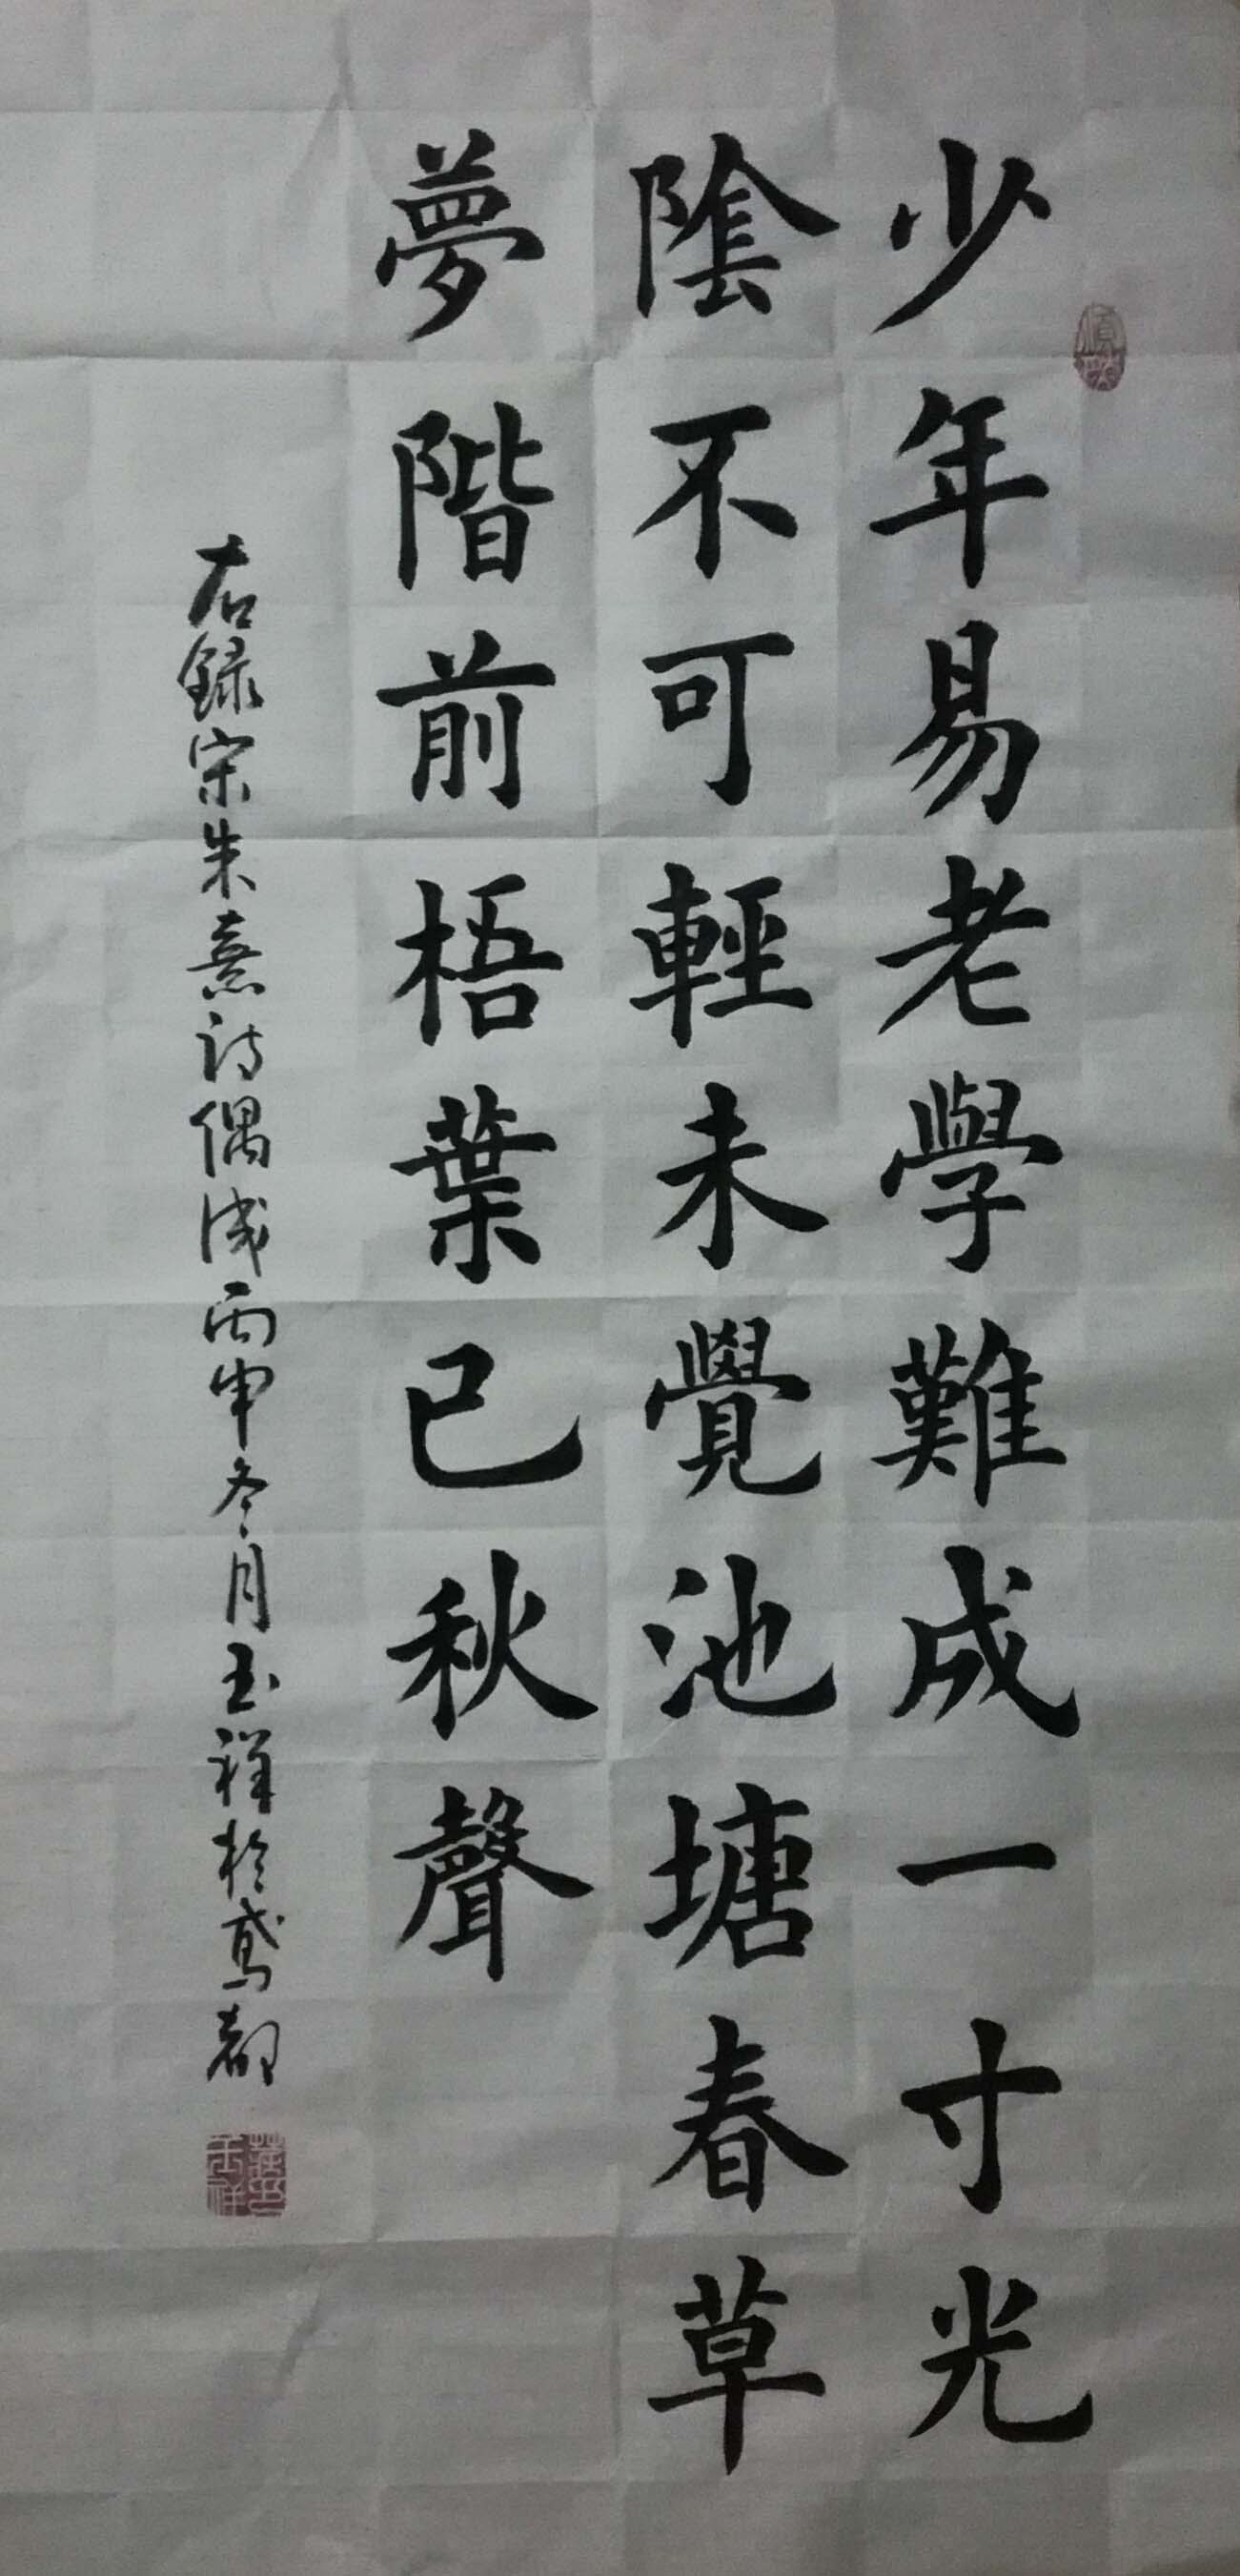 少年易老學難成一寸光
陰不可輕未覺池塘春草
夢階前梧葉已秋聲
右錄宋朱熹詩偶成丙申冬月玉祥於鳶都